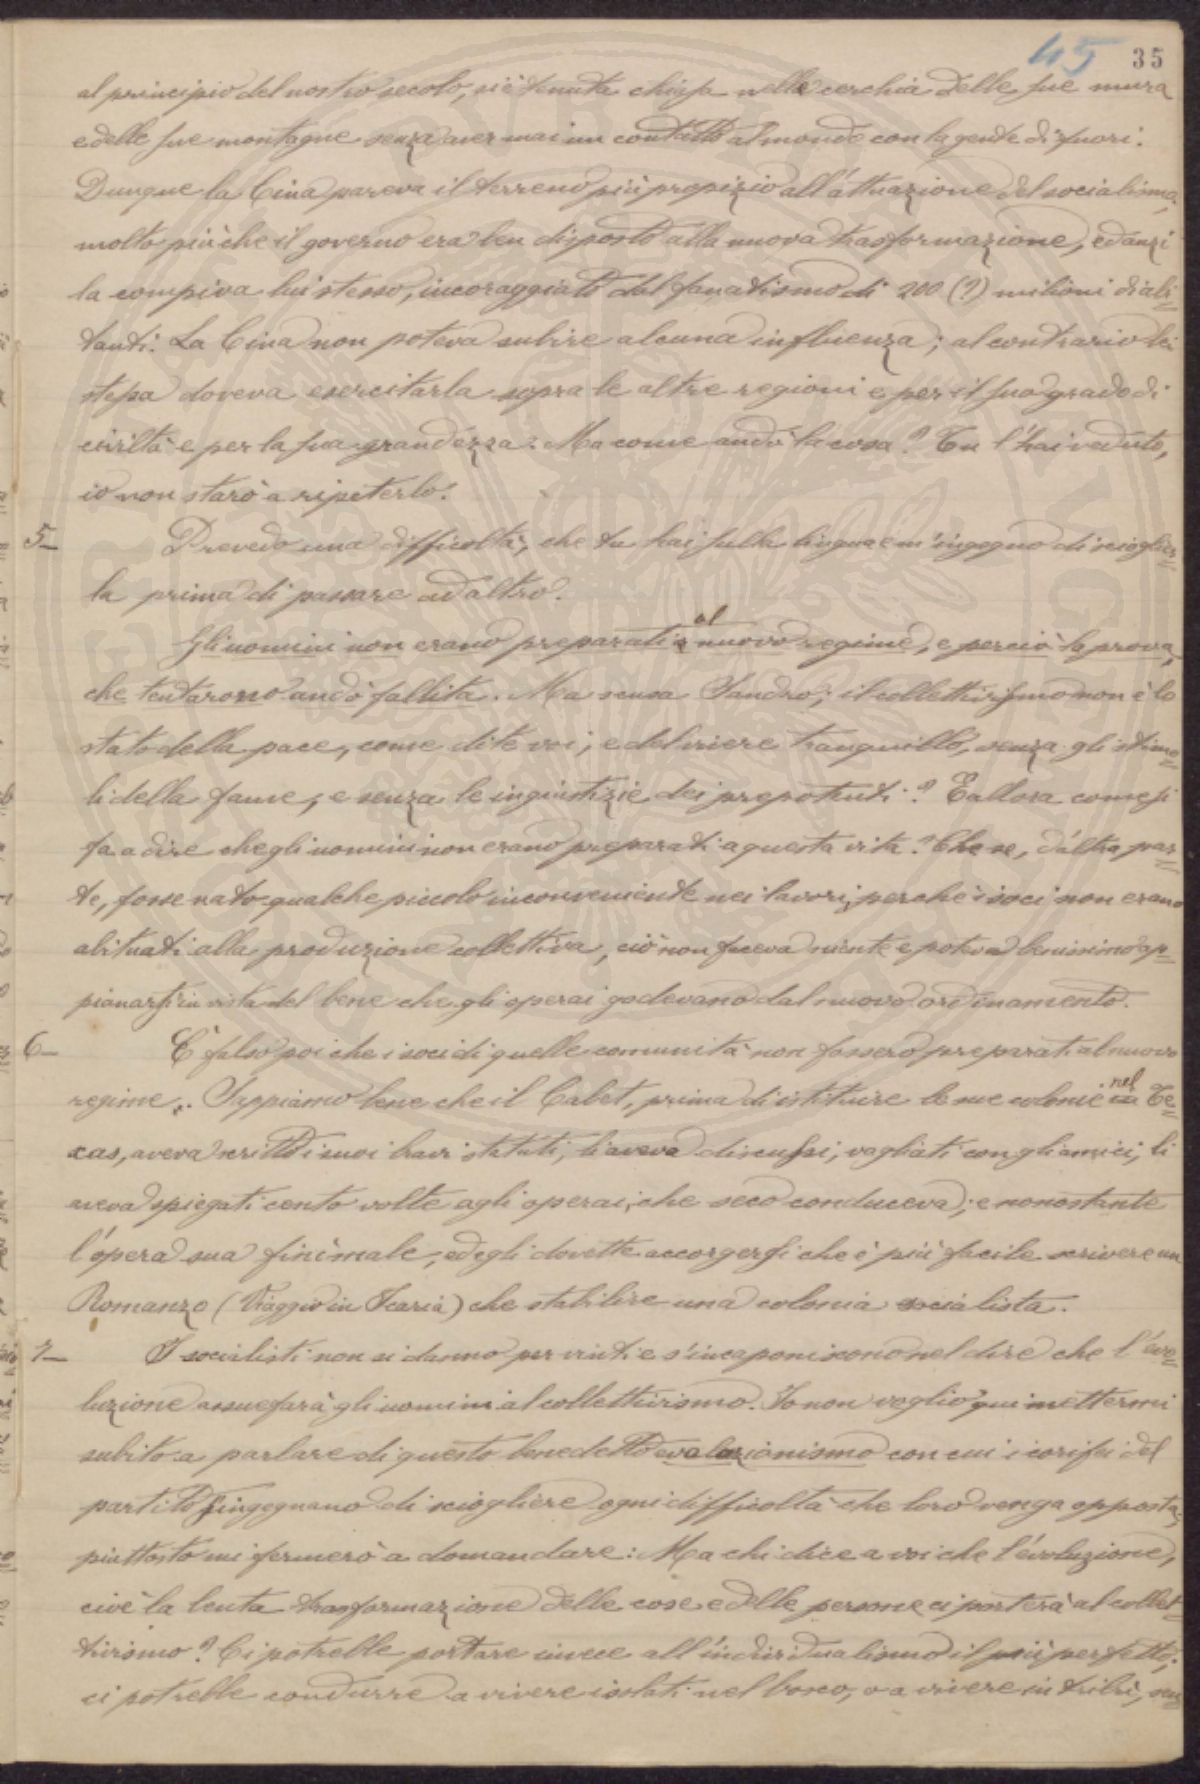 45 35
al principio del nostro secolo, si è tenuta chiusa nella cerchia delle sue mura
e delle sue montagne senza aver mai un contatto al mondo con la gente di fuori.
Dunque la Cina pareva il terreno più propizio all'attuazione del socialismo,
molto più che il governo era ben disposto alla nuova trasformazione, ed anzi
la compiva lui stesso, incoraggiato dal fanatismo di 200 (?) milioni di abi=
tanti. La Cina non poteva subire alcuna influenza; al contrario lei
stessa doveva esercitarla sopra le altre regioni e per il suo grado di
civiltà e per la sua grandezza. Ma come andò la cosa? Tu l'hai veduto,
io non starò a ripeterlo.
5_ Prevedo una difficoltà, che tu hai sulla lingua e m'ingegno di scioglier=
la prima di passare ad altro.
Gli uomini non erano preparati al nuovo regime, e perciò la prova,
che tentarono andò fallita. Ma scusa Sandro; il collettivismo non è lo
stato della pace, come dite voi, e del vivere tranquillo, senza gli stimo=
li della fame, e senza le ingiustizie dei prepotenti? E allora come si
fa a dire che gli uomini non erano preparati a questa vita? Che se, d'altra par=
te, fosse nato qualche piccolo inconveniente nei lavori, perchè i soci non erano
abituati alla produzione collettiva, ciò non faceva niente e poteva benissimo ap=
pianarsi in vista del bene che gli operai godevano dal nuovo ordinamento.
6_ È falso poi che i soci di quelle comunità non fossero preparati al nuovo
regime. Sappiamo bene che il Cabet, prima di istituire le sue colonie nel Te=
xas, aveva scritto i suoi bravi statuti, li aveva discussi, vagliati con gli amici, li
aveva spiegati cento volte agli operai, che seco conduceva; e nonostante
l'opera sua finì male, ed egli dovette accorgersi che è più facile scrivere un
Romanzo (Viaggio in Icaria) che stabilire una colonia socialista.
7_ I socialisti non si danno per vinti e s'incaponiscono nel dire che l'evo=
luzione assuefarà gli uomini al collettivismo. Io non voglio qui mettermi
subito a parlare di questo benedetto evoluzionismo con cui i corifei del
partito s'ingegnano di sciogliere ogni difficoltà che loro venga opposta;
piuttosto mi fermerò a domandare: Ma chi dice a voi che l'evoluzione,
cioè la lenta trasformazione delle cose e delle persone ci porterà al collet=
tivismo? Ci potrebbe portare invece all'individualismo il più perfetto;
ci potrebbe condurre a vivere isolati nel bosco, o a vivere in tribù,